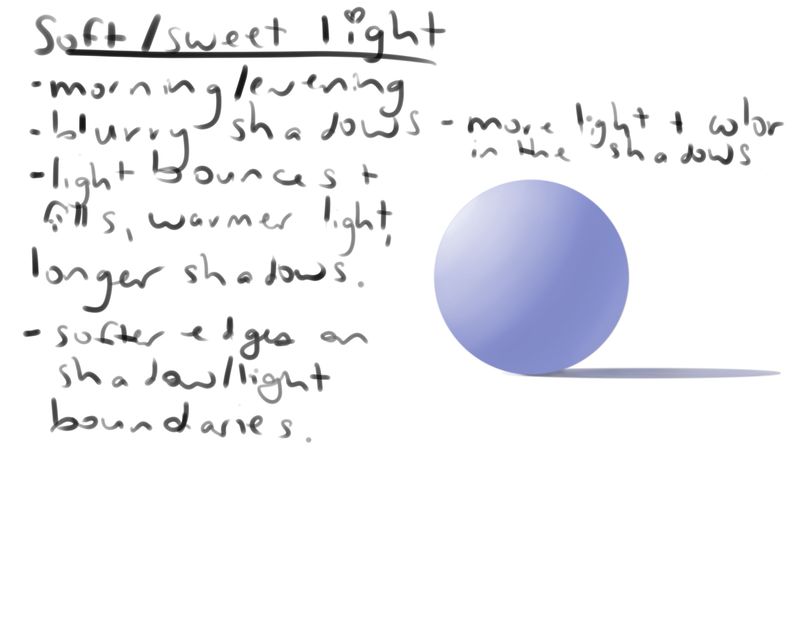 Soft/sweet light
-morning/evening
-blurry shadows
-light bounces +
fills, warmer light,
longer shadows.
- softer edges on
shadow/light
boundaries.
- more light + color
in the shadows